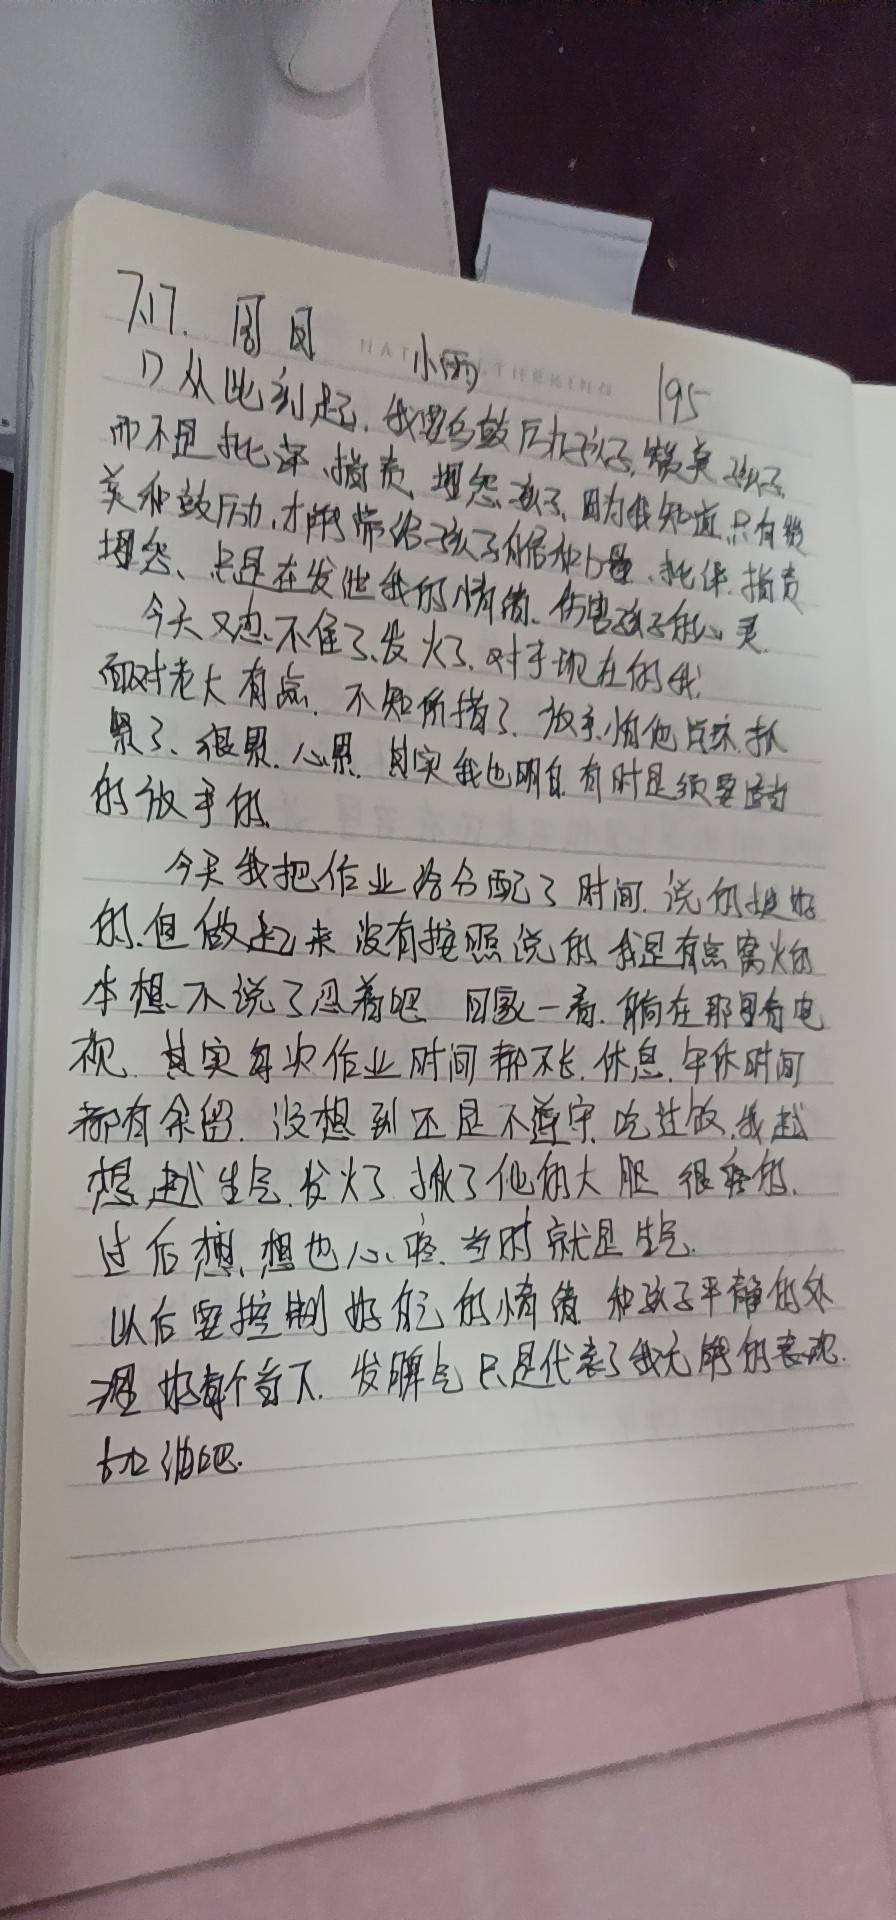 7.17. 周日 小雨 195
1) 从此刻起，我要多鼓励孩子，赞美孩子，
而不是批评、指责、埋怨孩子，因为我知道只有赞
美和鼓励，才能带给孩子自信和力量，批评、指责
埋怨、只是在发泄我的情绪、伤害孩子的心灵.
今天又忍不住了、发火了、对于现在的我，
面对老大有点、不知所措了、放手，怕他学坏，抓
累了、很累、心累，其实我也明白，有时是须要适当
的放手的、
今天我把作业给分配了时间、说的挺好
的、但做起来没有按照说的，我是有点窝火的
本想不说了忍着吧 回家一看、躺在那里看电
视、其实每次作业时间都不长、休息、午休时间
都有余留、没想到还是不遵守、吃过饭、我越
想越生气、发火了 揪了他的大腿 很疼的、
过后想、想也心疼、当时就是生气、
以后要控制好自己的情绪 和孩子平静的处
理好每个当下、发脾气只是代表了我无能的表现.
加油吧.